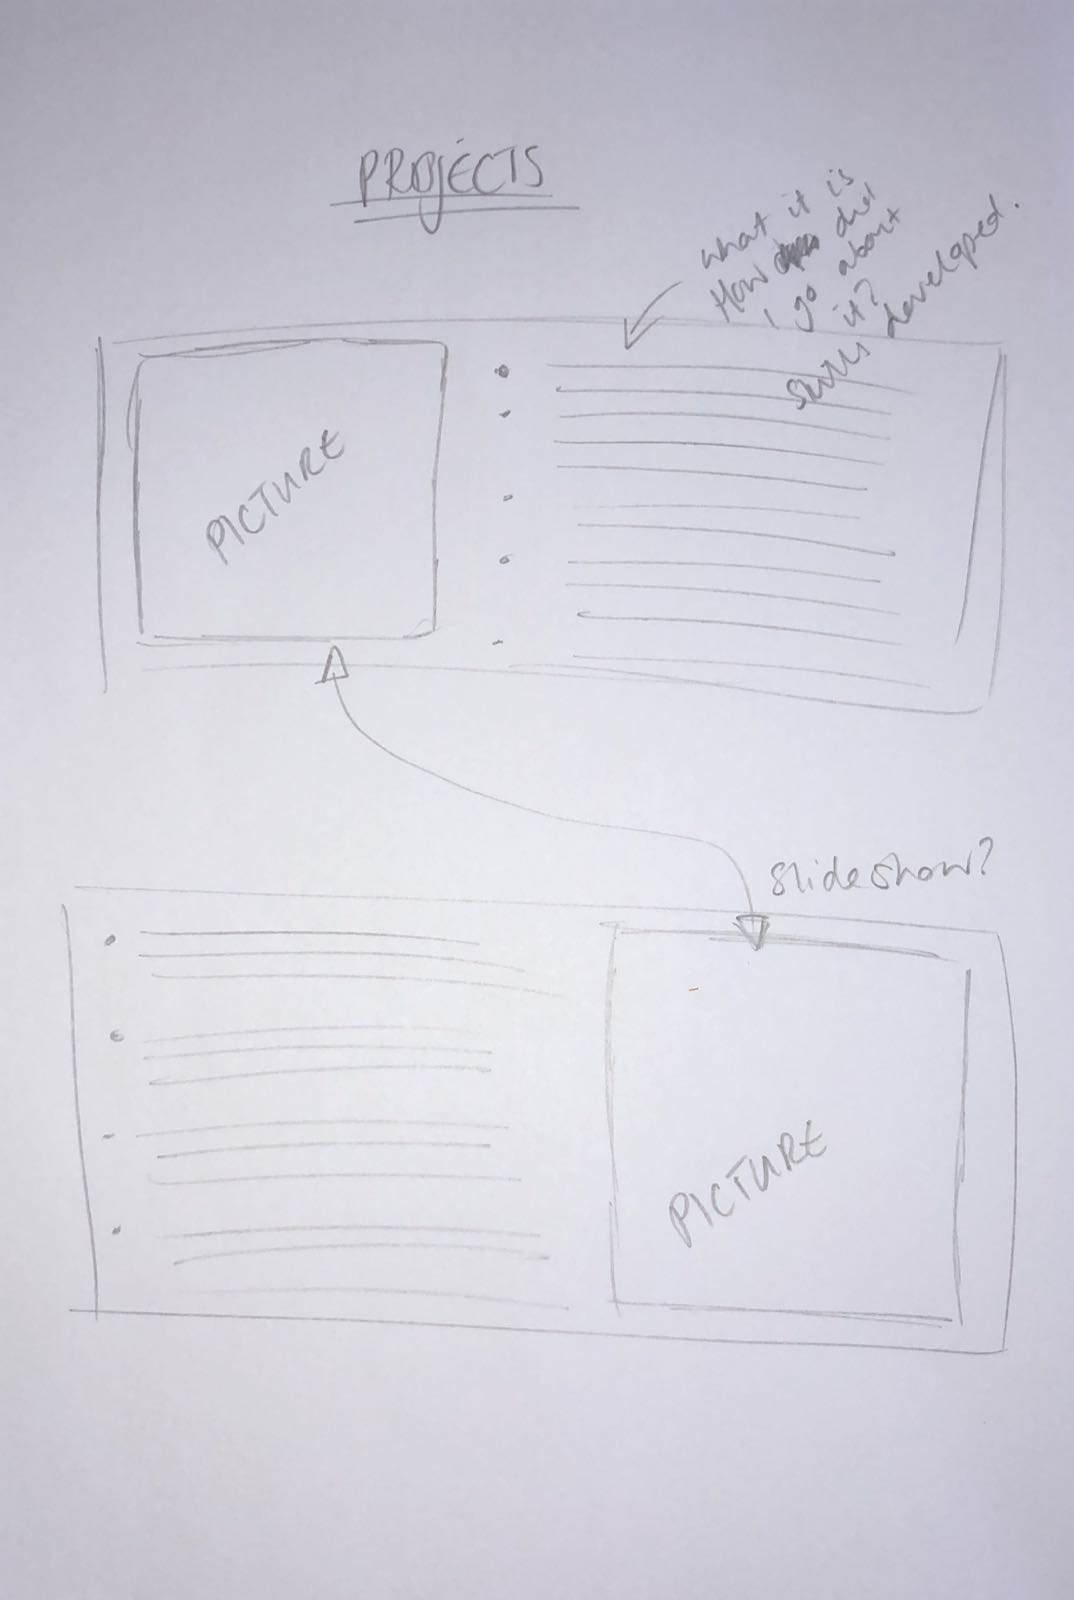 PROJECTS
what it is
How did
I go about
it?
skills developed.
PICTURE
slideshow?
PICTURE